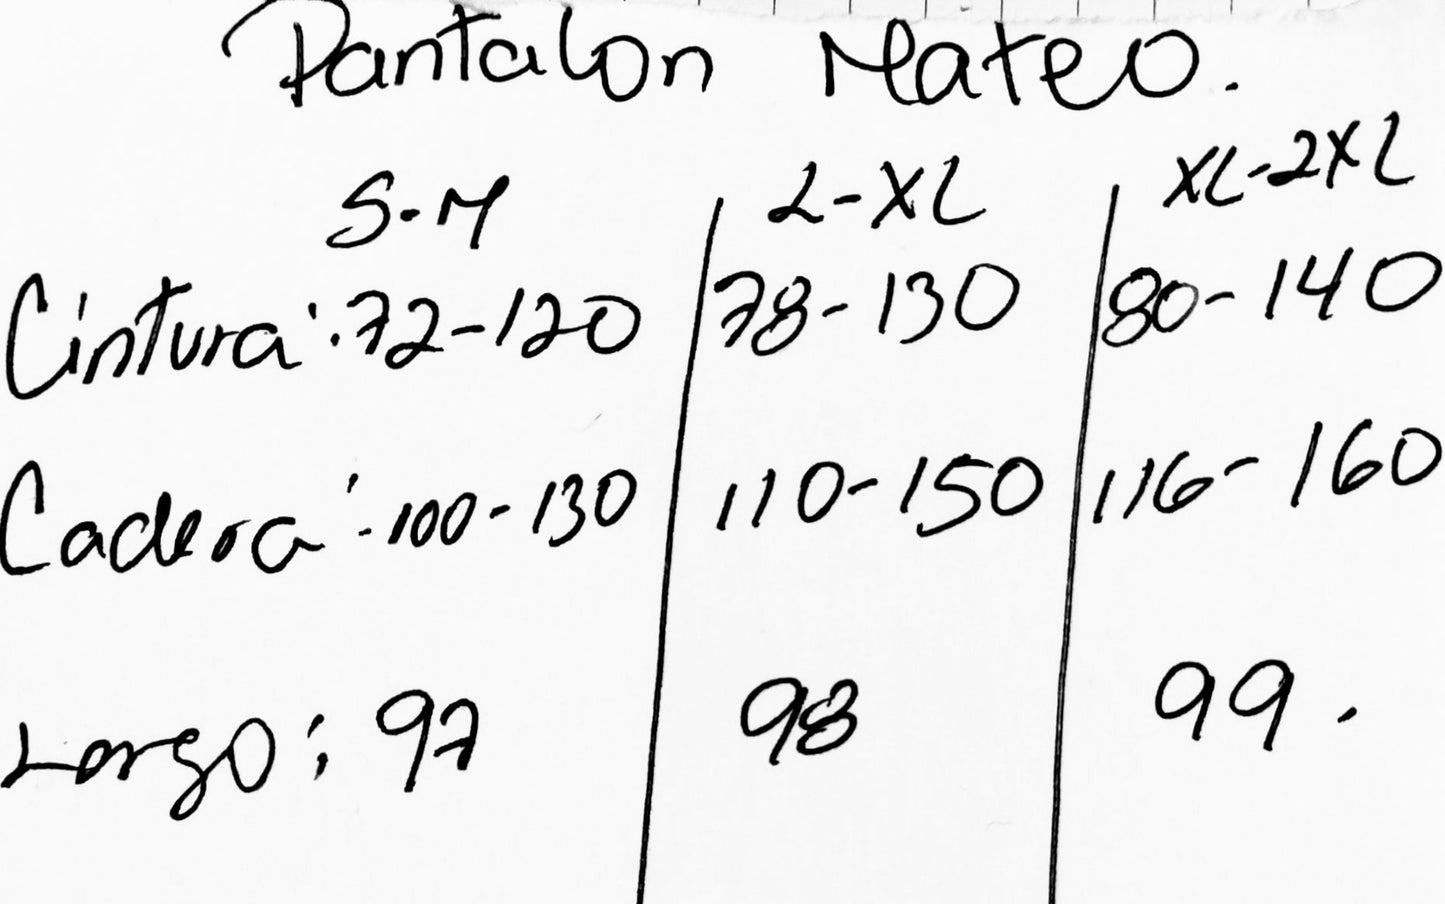 Pantalon Mateo.
S-M L-XL XL-2XL
Cintura: 72-120 78-130 80-140
Cadera: 100-130 110-150 116-160
Largo: 97 98 99.